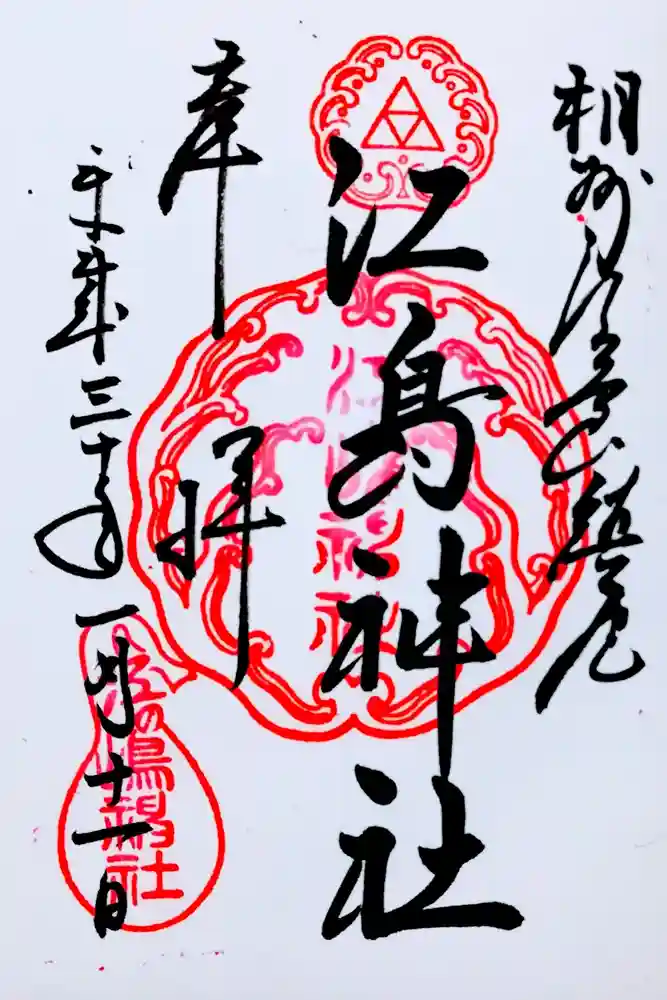 相州江之島鎮座
江島神社
奉拝
平成三十年一月十一日
江の嶋神社